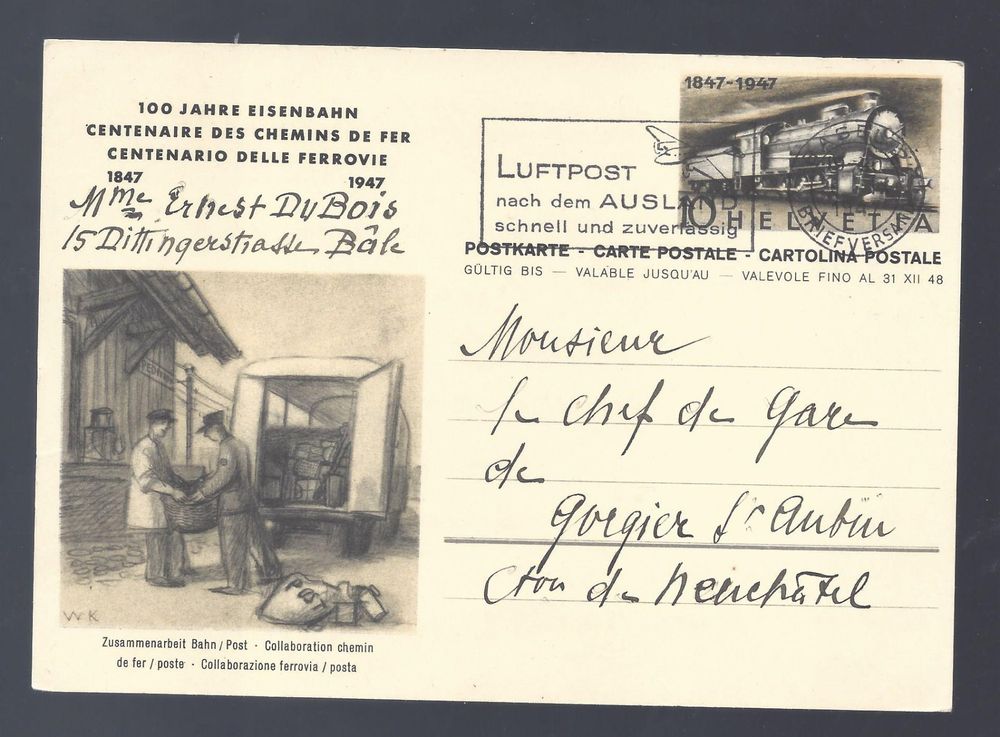 100 JAHRE EISENBAHN
CENTENAIRE DES CHEMINS DE FER
CENTENARIO DELLE FERROVIE
1847 1947
Mme Ernest DuBois
15 Dittingerstrasse Bâle
1847-1947
LUFTPOST
nach dem AUSLAND
schnell und zuverlässig
10 HELVETIA
BRIEFVERSAND
POSTKARTE - CARTE POSTALE - CARTOLINA POSTALE
GÜLTIG BIS — VALABLE JUSQU'AU — VALEVOLE FINO AL 31 XII 48
Monsieur
le chef de Gare
de
Gorgier St Aubin
Cton de Neuchâtel
POST
WK
Zusammenarbeit Bahn / Post · Collaboration chemin
de fer / poste · Collaborazione ferrovia / posta